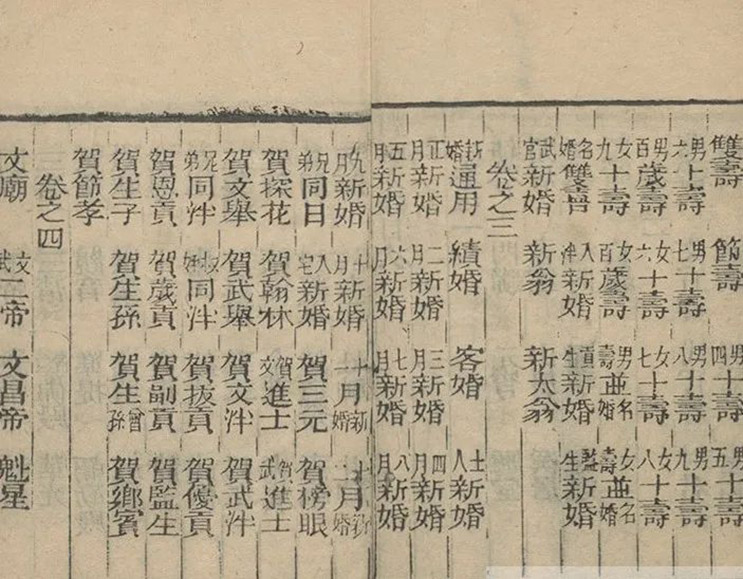 雙壽 節壽 男四十壽 男五十壽
男六十壽 男七十壽 男八十壽 男九十壽
男百歲壽 女六十壽 女七十壽 女八十壽
女九十壽 女百歲壽 男壽並名婚 女壽並名婚
名婚雙喜 入泮新婚 貢生新婚 監生新婚
武官新婚 新翁 新太翁
卷之三
新婚通用 續婚 客婚 士人新婚
正月新婚 二月新婚 三月新婚 四月新婚
五月新婚 六月新婚 七月新婚 八月新婚
九月新婚 十月新婚 十一月新婚 十二月新婚
兄弟同日 入宅新婚 賀三元 賀榜眼
賀探花 賀翰林 賀文進士 賀武進士
賀文舉 賀武舉 賀文泮 賀武泮
兄弟同泮 叔姪同泮 賀拔貢 賀優貢
賀恩貢 賀歲貢 賀副貢 賀監生
賀生子 賀生孫 賀生曾孫 賀鄉賓
賀節孝
卷之四
文廟 文武二帝 文昌帝 魁星